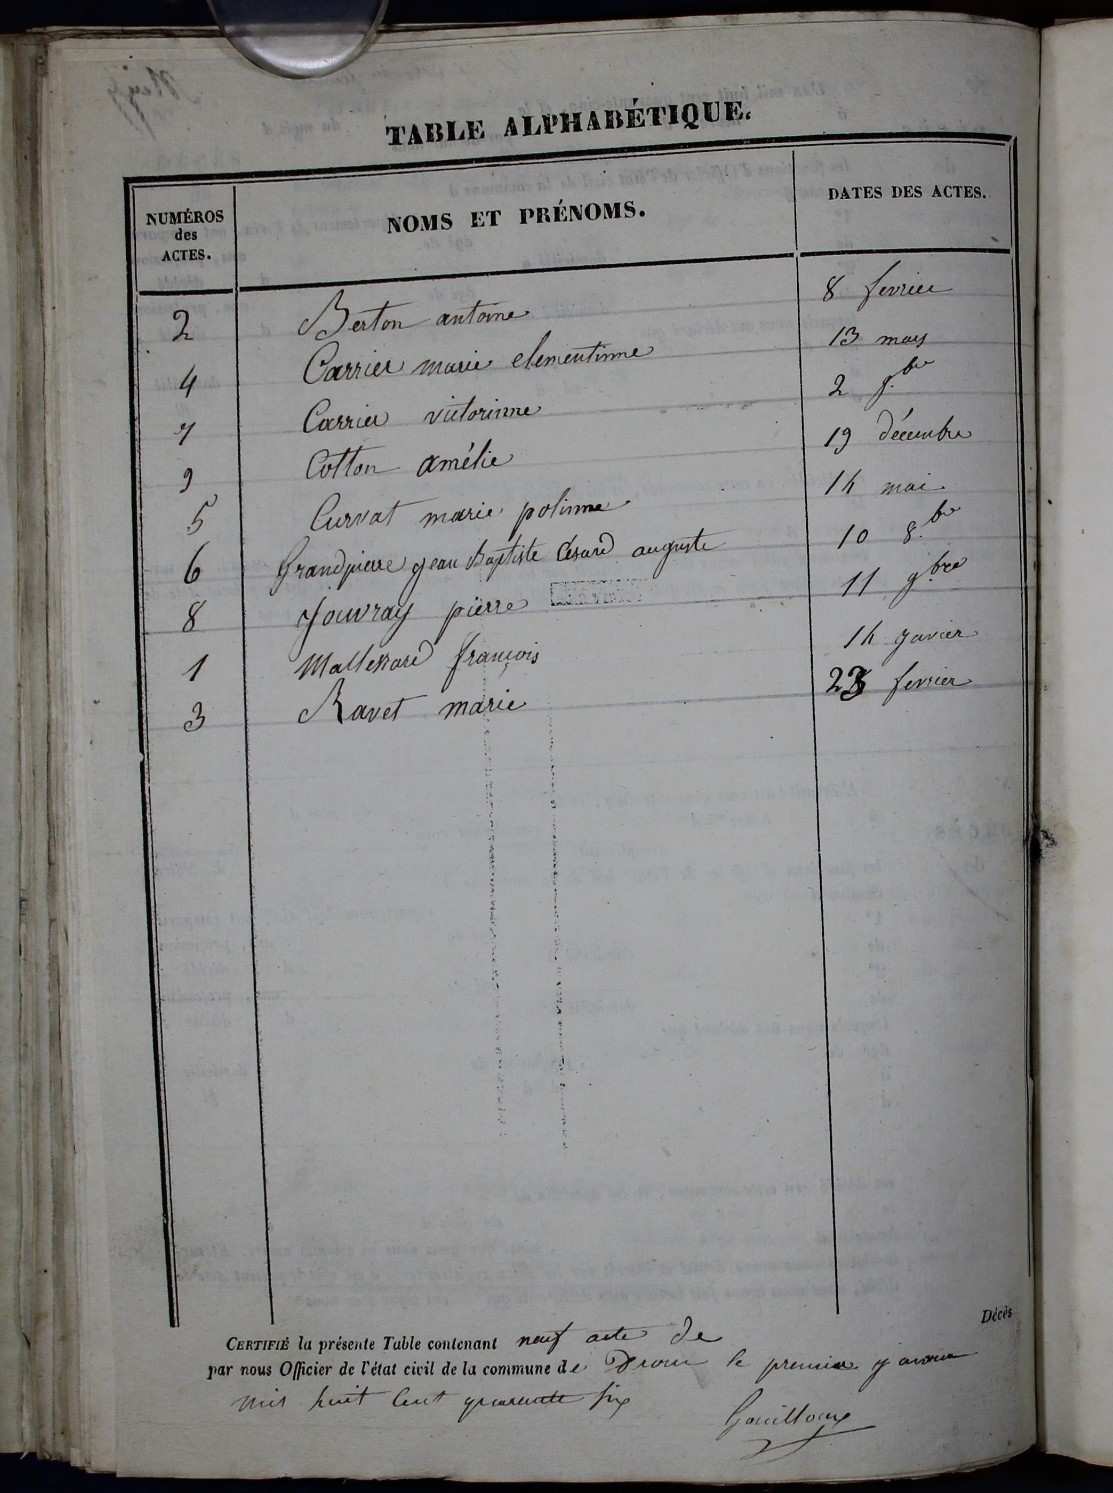 TABLE ALPHABÉTIQUE.
NUMÉROS
des
ACTES.
NOMS ET PRÉNOMS.
DATES DES ACTES.
2 Berton antoine 8 fevrier
4 Carrier marie clementinne 13 mars
7 Carrier victorinne 2 9.bre
9 Cotton amélie 19 décembre
5 Curvat marie polinne 14 mai
6 Grandpierre jean Baptiste Césard auguste 10 8.bre
8 Jouvray pierre 11 9.bre
1 Mallessard françois 14 javier
3 Ravet marie 23 fevrier
Décès
CERTIFIÉ la présente Table contenant neuf acte de
par nous Officier de l'état civil de la commune de Drom le premier
mil huit cent quarante six
Gouilloux